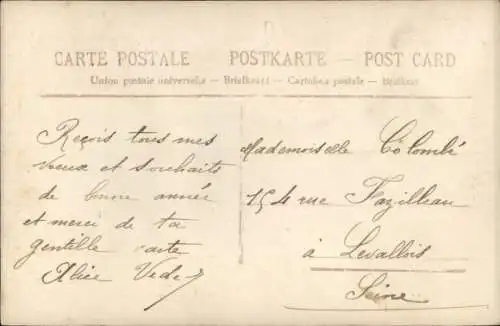 CARTE POSTALE POSTKARTE — POST CARD
Union postale universelle — Briefkaart — Cartolina postale —
Reçois tous mes
vœux et souhaits
de bonne année
et merci de ta
gentille carte
Alice
Mademoiselle Colombé
154 rue Fazilleau
à Levallois
Seine